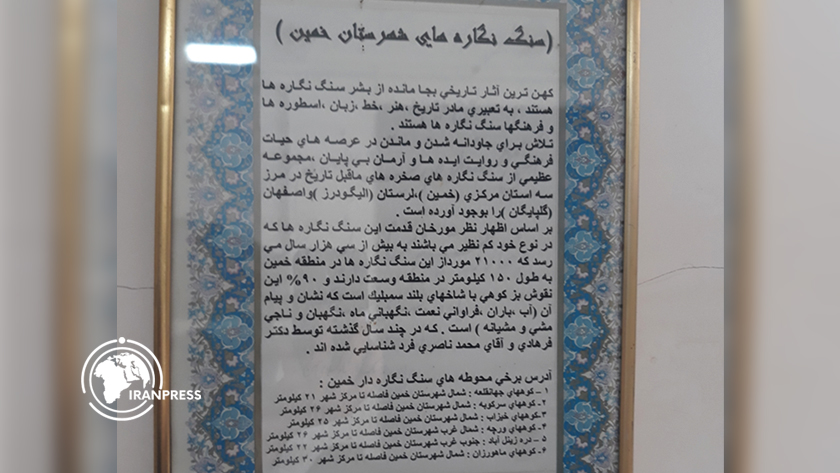 (سنگ نگاره هاي شهرستان خمين )
کهن ترين آثار تاريخي بجا مانده از بشر سنگ نگاره ها
هستند ، به تعبيري مادر تاريخ ،هنر ،خط ،زبان ،اسطوره ها
و فرهنگها سنگ نگاره ها هستند .
تلاش براي جاودانه شدن و ماندن در عرصه هاي حيات
فرهنگي و روايت ايده ها و آرمان بي پايان ،مجموعه
عظيمي از سنگ نگاره هاي صخره هاي ماقبل تاريخ در مرز
سه استان مرکزي (خمين )،لرستان (اليگودرز )واصفهان
(گلپايگان )را بوجود آورده است .
بر اساس اظهار نظر مورخان قدمت اين سنگ نگاره ها که
در نوع خود کم نظير مي باشند به بيش از سي هزار سال مي
رسد که ۲۱۰۰۰ مورداز اين سنگ نگاره ها در منطقه خمين
به طول ۱۵۰ کيلومتر در منطقه وسعت دارند و ۹۰% اين
نقوش بز کوهي با شاخهاي بلند سمبليك است که نشان و پيام
آن (آب ،باران ،فراواني نعمت ،نگهباني ماه ،نگهبان و ناجي
مشي و مشيانه ) است . که در چند سال گذشته توسط دکتر
فرهادي و آقاي محمد ناصري فرد شناسايي شده اند .
آدرس برخي محوطه هاي سنگ نگاره دار خمين :
۱ – کوههاي جهانقلعه : شمال شهرستان خمين فاصله تا مرکز شهر ۲۱ کيلومتر
۲– کوههاي سرکوبه : شمال شهرستان خمين فاصله تا مرکز شهر ۲۶ کيلومتر
۳–کوههاي خيزاب : شمال شهرستان خمين فاصله تا مرکز شهر ۲۵ کيلومتر
۴– کوههاي ورچه : شمال غرب شهرستان خمين فاصله تا مرکز شهر ۲۶ کيلومتر
۵ – دره زينل آباد : جنوب غرب شهرستان خمين فاصله تا مرکز شهر ۲۲ کيلومتر
۶– کوههاي ماهورزان : شمال شهرستان خمين فاصله تا مرکز شهر ۳۰ کيلومتر
IRANPRESS